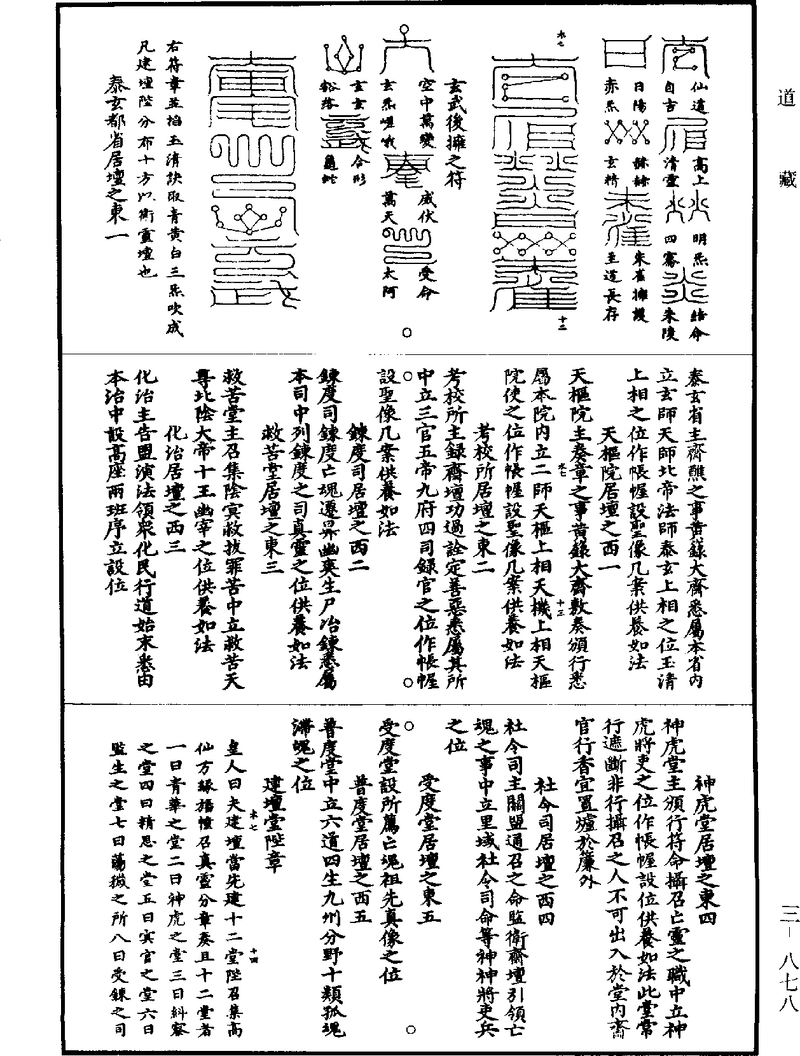 道藏
仙道 高上 明炁 結命
自古 清靈 四騫 朱陵
日陽 赫赫 朱雀擁護
赤炁 玄精 至道長存
水七
十二
玄武後擁之符
空中萬變 威伏 受命
玄炁嵯峨 萬天 太阿
玄玄 合形
谿落 龜蛇
右符章並掐玉清訣取青黃白三炁吹成
凡建壇陛分布十方以衛靈壇也
泰玄都省居壇之東一
泰玄省主齋醮之事黃籙大齋悉屬本省內
立玄師天師北帝法師泰玄上相之位玉清
上相之位作帳幄設聖像几案供養如法
天樞院居壇之西一
天樞院主奏章之事黃籙大齋敷奏頒行悉
水七
十三
屬本院內立二師天樞上相天機上相天樞
院使之位作帳幄設聖像几案供養如法
考校所居壇之東二
考校所主錄齋壇功過詮定善惡悉屬其所
中立三官五帝九府四司錄官之位作帳幄
設聖像几案供養如法
鍊度司居壇之西二
鍊度司鍊度亡魂遷昇幽爽生尸冶鍊悉屬
本司中列鍊度之司真靈之位供養如法
救苦堂居壇之東三
救苦堂主召集陰冥救拔罪苦中立救苦天
尊北陰大帝十王幽宰之位供養如法
化治居壇之西三
化治主告盟演法領眾化民行道始末悉由
本治中設高座兩班序立設位
神虎堂居壇之東四
神虎堂主頒行符命攝召亡靈之職中立神
虎將吏之位作帳幄設位供養如法此堂常
行遮斷非行攝召之人不可出入於堂內齋
官行香宜置爐於簾外
社令司居壇之西四
社令司主關盟通召之命監衛齋壇引領亡
魂之事中立里域社令司命等神神將吏兵
之位
受度堂居壇之東五
受度堂設所薦亡魂祖先真像之位
普度堂居壇之西五
普度堂中立六道四生九州分野十類孤魂
滯魄之位
建壇堂陛章
水七
十四
皇人曰夫建壇當先建十二堂陛召集高
仙方緣播幢召真靈分章奏且十二堂者
一曰青華之堂二曰神虎之堂三曰糾察
之堂四曰精思之堂五曰寅官之堂六曰
監生之堂七曰蕩穢之所八曰受鍊之司
三－八七八